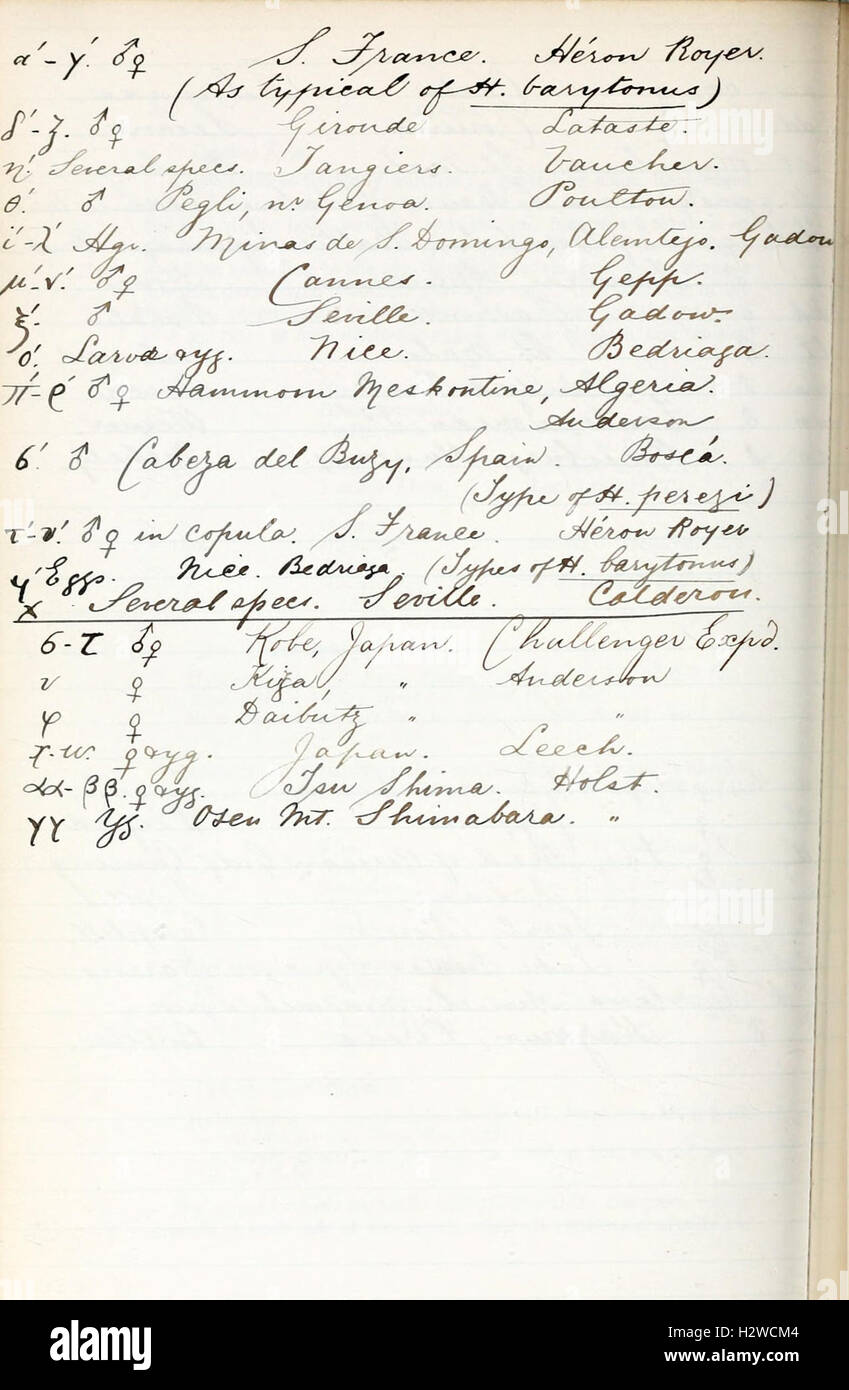 α'-γ'. ♂♀ S. France. Héron Royer.
(As typical of H. barytonus)
δ'-ζ. ♂♀ Gironde Lataste.
η'. Several specs. Tangiers. Vaucher.
θ'. ♂ Pegli, nr Genoa. Poulton.
ι'-λ' Hgr. Minas de S. Domingo, Alemtejo. Gadow
μ'-ν'. ♂♀ Cannes. Gepp.
ξ'. ♂ Seville. Gadow.
ο'. Larvæ & yg. Nice. Bedriaga.
π'-ρ' ♂♀ Hammom Meskontine, Algeria.
Anderson
σ'. ♂ Cabeza del Buzy, Spain. Boscá.
(Type of H. perezi)
τ'-υ'. ♂♀ in copula. S. France. Héron Royer
Eggs. Nice. Bedriaga. (Types of H. barytonus)
χ Several specs. Seville. Calderon.
σ-τ ♂♀ Kobe, Japan. Challenger Expd.
υ ♀ Kiga, " Anderson
φ ♀ Daibutz " "
χ-ω. ♀ & yg. Japan. Leech.
αα-ββ. ♀ & yg. Tsu Shima. Holst.
γγ Yg. Osen Mt. Shimabara. "
alamy
Image ID: H2WCM4
www.alamy.com